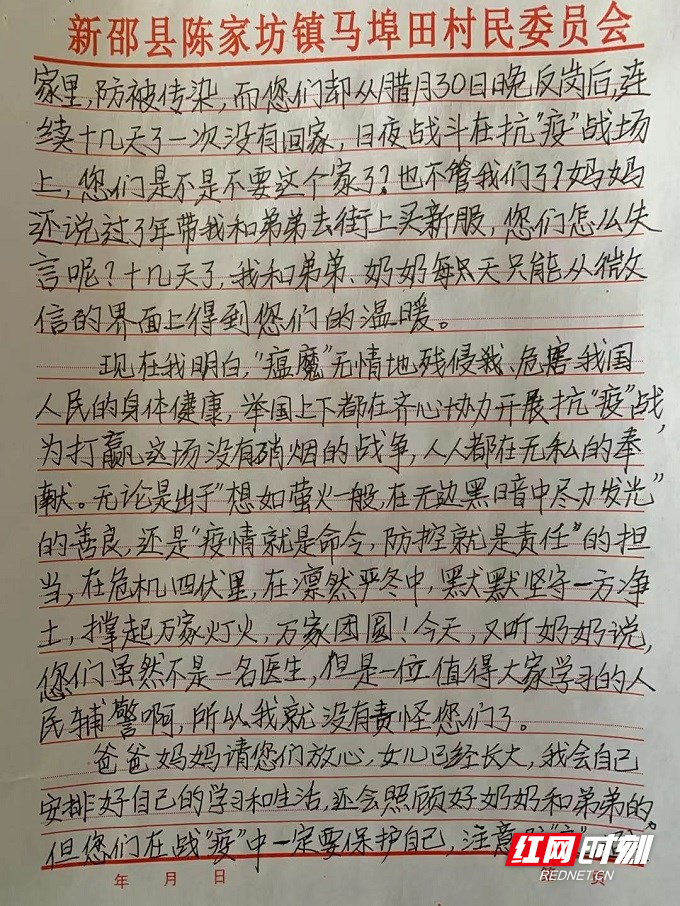 新邵县陈家坊镇马埠田村民委员会
家里,防被传染,而您们却从腊月30日晚反岗后,连
续十几天了一次没有回家,日夜战斗在抗“疫”战场
上,您们是不是不要这个家了?也不管我们了?妈妈
还说过了年带我和弟弟去街上买新服,您们怎么失
言呢?十几天了,我和弟弟、奶奶每天只能从微
信的界面上得到您们的温暖。
现在我明白,“瘟魔”无情地残侵我、危害我国
人民的身体健康,举国上下都在齐心协力开展抗“疫”战,
为打赢这场没有硝烟的战争,人人都在无私的奉
献。无论是出于“想如萤火一般,在无边黑暗中尽力发光”
的善良,还是“疫情就是命令,防控就是责任”的担
当,在危机四伏里,在凛然严冬中,默默坚守一方净
土,撑起万家灯火,万家团圆!今天,又听奶奶说,
您们虽然不是一名医生,但是一位值得大家学习的人
民辅警啊,所以我就没有责怪您们了。
爸爸妈妈请您们放心,女儿已经长大,我会自己
安排好自己的学习和生活,还会照顾好奶奶和弟弟的。
但您们在战“疫”中一定要保护自己,注意
年 月 日 页
红网时刻
REDNET.CN